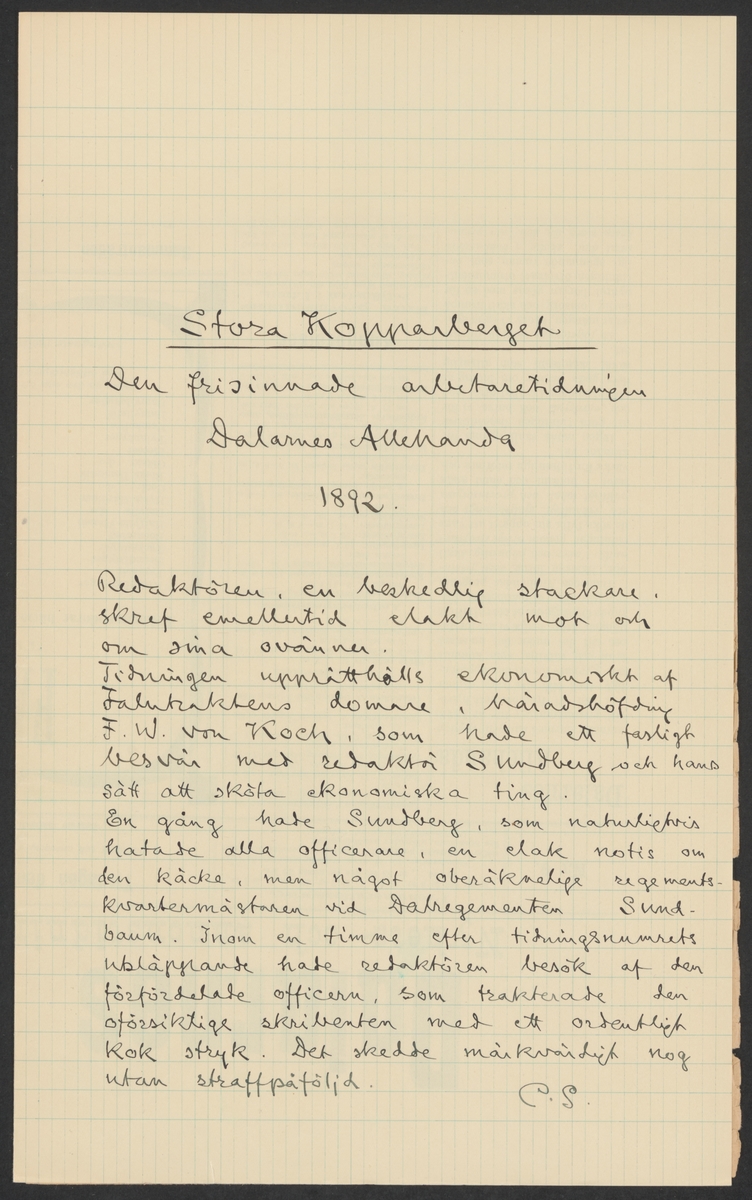 Stora Kopparberget
Den frisinnade arbetaretidningen
Dalarnes Allehanda
1892.
Redaktören, en beskedlig stackare,
skref emellertid elakt mot och
om sina ovänner.
Tidningen upprätthålls ekonomiskt af
Falutraktens domare, häradshöfding
F. W. von Koch, som hade ett fasligt
besvär med redaktör Sundberg och hans
sätt att sköta ekonomiska ting.
En gång hade Sundberg, som naturligtvis
hatade alla officerare, en elak notis om
den käcke, men något oberäknelige regements-
kvartermästaren vid Dalregementen Sund-
baum. Inom en timme efter tidningsnumrets
utsläppande hade redaktören besök af den
förfördelade officern, som trakterade den
oförsiktige skribenten med ett ordentligt
kok stryk. Det skedde märkvärdigt nog
utan straffpåföljd.
C. S.